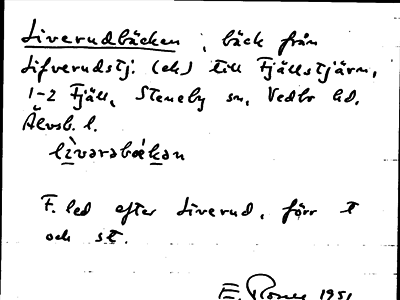 Liverudbäcken, bäck från
Lifverudstj. (ek) till Fjällstjärn,
1-2 Fjäll, Steneby sn, Vedbo hd,
Älvsb. l.
lìvərəbækən
F. led efter Liverud, förr t
och st.
E. 1951